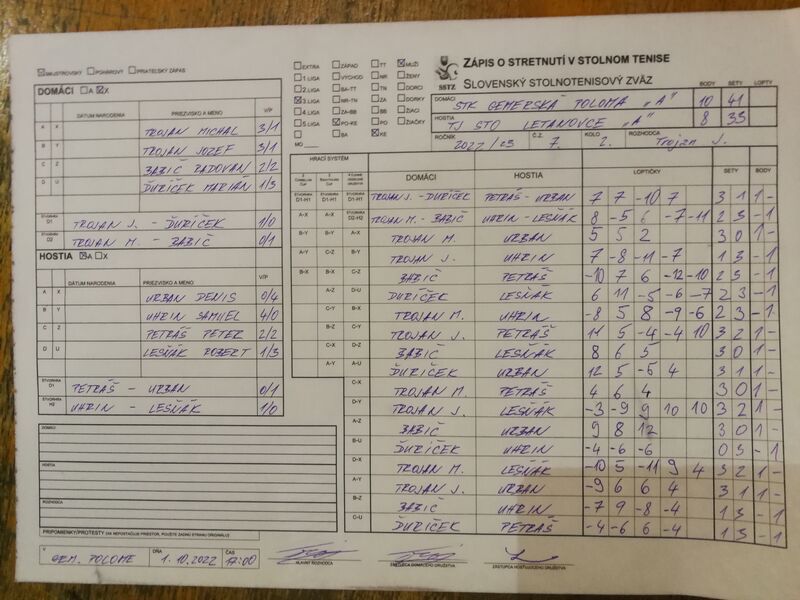 MAJSTROVSKÝ POHÁROVÝ PRIATEĽSKÝ ZÁPAS
DOMÁCI A X
DÁTUM NARODENIA PRIEZVISKO A MENO V/P
A X TROJAN MICHAL 3/1
B Y TROJAN JOZEF 3/1
C Z BABIČ RADOVAN 2/2
D U ĎURIČEK MARIÁN 1/3
ŠTVORHRA D1 TROJAN J. - ĎURIČEK 1/0
ŠTVORHRA D2 TROJAN M. - BABIČ 0/1
HOSTIA A X
DÁTUM NARODENIA PRIEZVISKO A MENO V/P
A X URBAN DENIS 0/4
B Y UHRIN SAMUEL 4/0
C Z PETRÁŠ PETER 2/2
D U LESŇÁK ROBERT 1/3
ŠTVORHRA PETRÁŠ - URBAN 0/1
ŠTVORHRA H2 UHRIN - LESŇÁK 1/0
DOMÁCI
HOSTIA
ROZHODCA
PRIPOMIENKY/PROTESTY (AK NEPOSTAČUJE PRIESTOR, POUŽITE ZADNÚ STRANU ORIGINÁLU)
EXTRA ZÁPAD TT MUŽI
1.LIGA VÝCHOD NR ŽENY
2.LIGA BA-TT TN DORCI
3.LIGA NR-TN ZA DORKY
4.LIGA ZA-BB BB ŽIACI
5.LIGA PO-KE PO ŽIAČKY
BA KE
MO
SSTZ
ZÁPIS O STRETNUTÍ V STOLNOM TENISE
SLOVENSKÝ STOLNOTENISOVÝ ZVÄZ
BODY SETY LOPTY
DOMÁCI STK GEMERSKÁ POLOMA "A" 10 41
HOSTIA TJ STO LETANOVCE "A" 8 35
ROČNÍK 2022/23 Č.Z. 7. KOLO 2. ROZHODCA Trojan J.
HRACÍ SYSTÉM
DOMÁCI HOSTIA LOPTIČKY SETY BODY
TROJAN J. - ĎURIČEK PETRÁŠ - URBAN 7 7 -10 7 3 1 1 -
TROJAN M. - BABIČ UHRIN - LESŇÁK 8 -5 6 -7 -11 2 3 - 1
TROJAN M. URBAN 5 5 2 3 0 1 -
TROJAN J. UHRIN 7 -8 -11 -7 1 3 - 1
BABIČ PETRÁŠ -10 7 6 -12 -10 2 3 - 1
ĎURIČEK LESŇÁK 6 11 -5 -6 -7 2 3 - 1
TROJAN M. UHRIN -8 5 8 -9 -6 2 3 - 1
TROJAN J. PETRÁŠ 11 5 -4 -4 10 3 2 1 -
BABIČ LESŇÁK 8 6 5 3 0 1 -
ĎURIČEK URBAN 12 5 -5 4 3 1 1 -
TROJAN M. PETRÁŠ 4 6 4 3 0 1 -
TROJAN J. LESŇÁK -3 -9 9 10 10 3 2 1 -
BABIČ URBAN 9 8 12 3 0 1 -
ĎURIČEK UHRIN -4 -6 -6 0 3 - 1
TROJAN M. LESŇÁK -10 5 -11 9 4 3 2 1 -
TROJAN J. URBAN -9 6 6 4 3 1 1 -
BABIČ UHRIN -7 9 -8 -4 1 3 - 1
ĎURIČEK PETRÁŠ -4 -6 6 -4 1 3 - 1
V GEM. POLOME DŇA 1.10.2022 ČAS 17:00
HLAVNÝ ROZHODCA ZÁSTUPCA DOMÁCEHO DRUŽSTVA ZÁSTUPCA HOSŤUJÚCEHO DRUŽSTVA